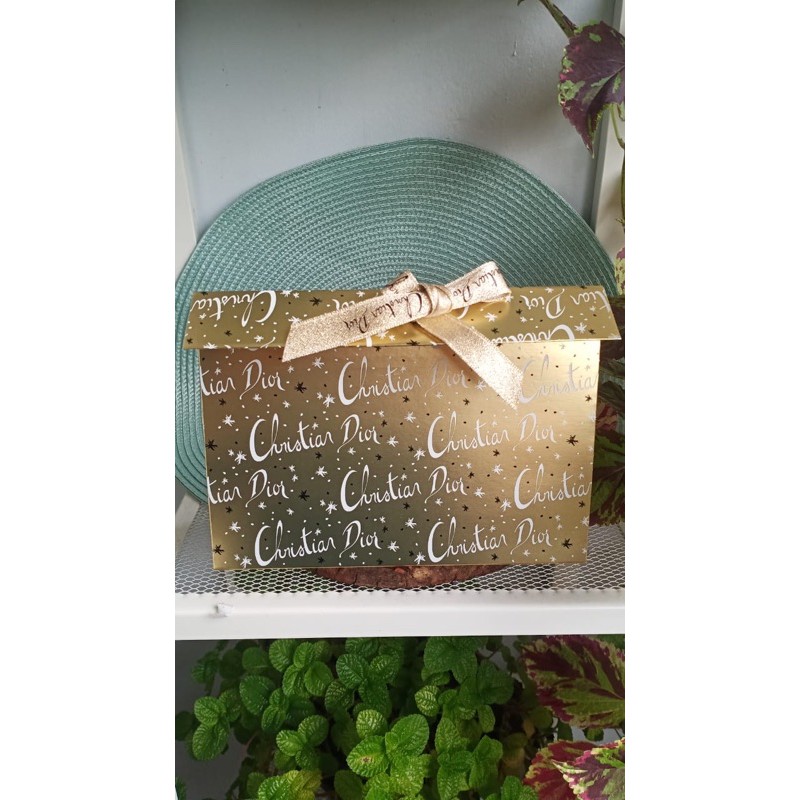 Christia
Christian Dior
Christia
tian Dior
Christian Dior
Christia
Christian Dior
Christian Dior
tian Dior
Christian Dior
Christia
Christian Dior
Christian Dior